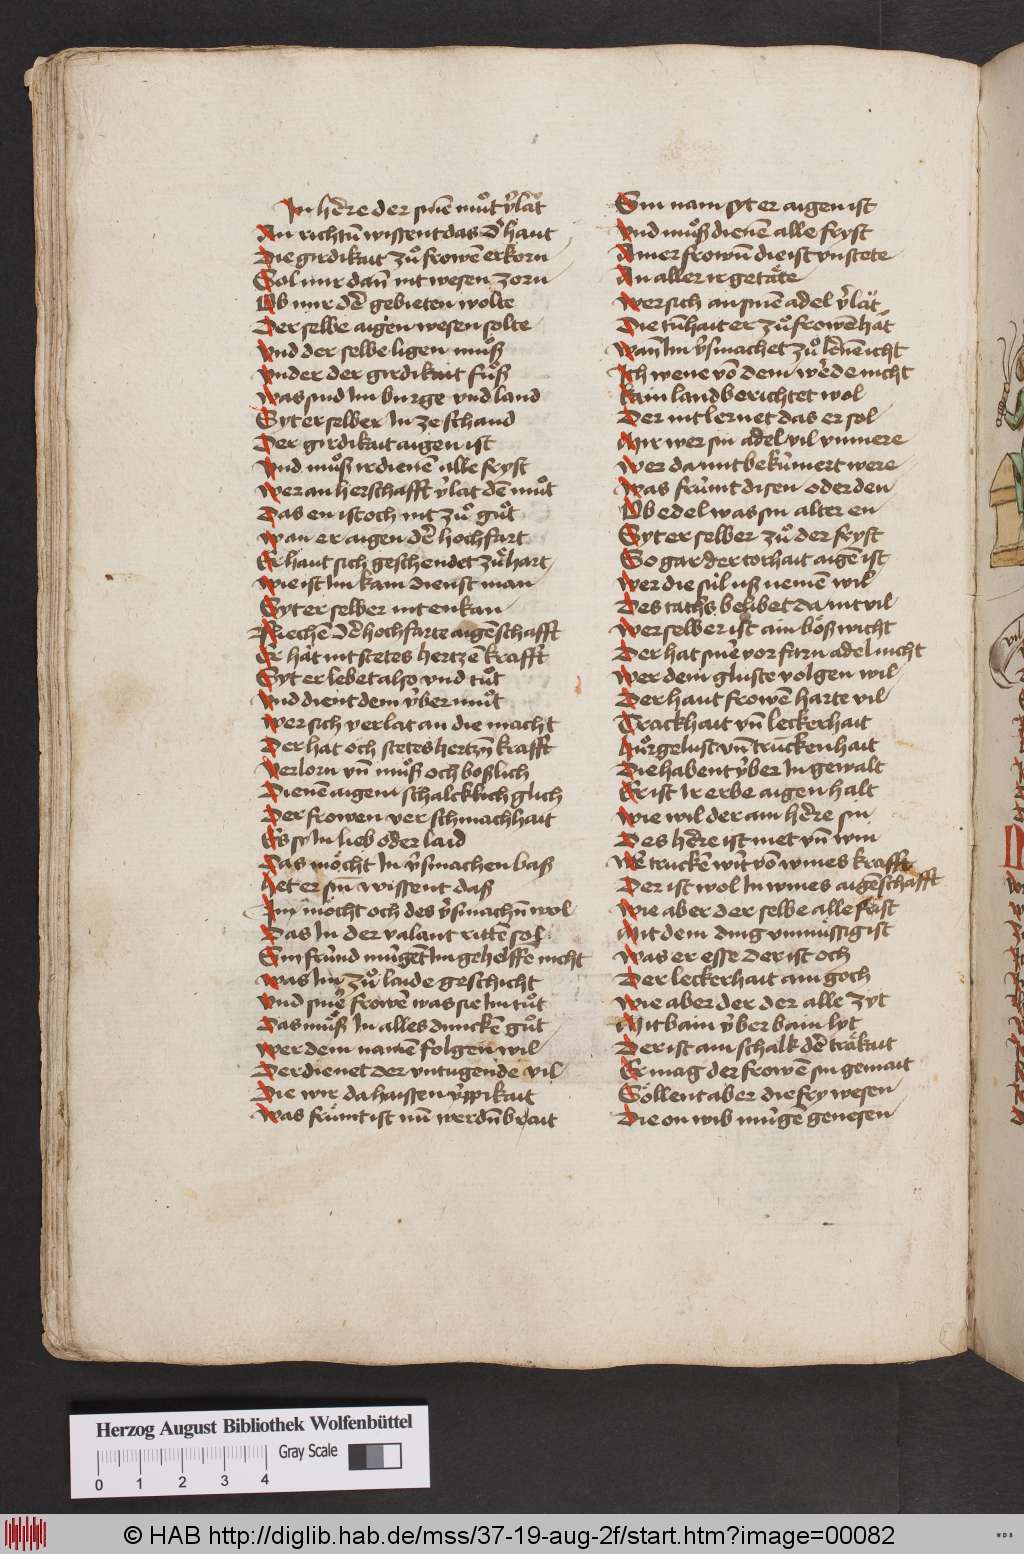 In hr̄re der sinē můt v̓lat
An richtū wissent das d' haut
Die girdikait zů frowē erkorn
Sol mir dañ nit wesen zorn
Ob mir dē gebieten wolte
Der selbe aigen wesen solte
vnd der selbe ligen můß
vnder der girdikait fůß
was sind Im burge vnd land
Syt er selber In ze schand
Der girdikait aigen ist
vnd můß ir dienē alle fryst
wer an herschafft v̓lat dē můt
Das en ist och nit zů gůt
wan er aigen dē hochfart
Er haut sich geschendet zů hart
wie ist Im kain dienst man
Syt er selber nit enkan
dē hochfarte aigēschafft
Er hat nit stetes hertzē krafft
Syt er lebet also vnd tůt
vnd dient dem v̓bermůt
wer sich verlat an die macht
Der hat och stetes hertzn̄ krafft
verlorn vn̄ můß och boßlich
Dienē aigem schalcklich glich
Der frowen ver schmachhait
Es sy In lieb oder laid
Das mo̓cht In v̓smachen baß
het er sin̄ wissent daß
Im mo̓cht och des v̓smachn̄ wol
Das In der valant rittē sol
Sin fru̓nd mu̓gēt Im gehelffe nicht
was Im zů laide geschicht
vnd sinē frowē was sie Im tůt
Das můß In alles dunckē gůt
wer dem namē folgen wil
Der dienet der vntugende vil
Die wir da haissen v̓ppikait
was fru̓mt ist nū werdn̄ brait
Sin nam syt er aigen ist
vnd můß dienē alle fryst
Ainer frowūn die ist vnstete
An aller ir getåte
wer sich an sinē adel v̓låt
Die tūhait er zů frowē hat
wañ Im v̓smachet zů lr̄nē icht
Ich wene vō dem werde nicht
kain land berichtet wol
Der nit lernet das er sol
Mir wer sin adel vil vnmere
wer da mit beku̓mert were
was fru̓mt disen oder den
Ob edel was sin alter en
Syt er selber zů der fryst
So gar der torhait aigē ist
wer die sul uß nemē wil
Des tachs belibet da nit vil
wer selber ist ain bo̓ßwicht
Der hat sinē vorfarn adel nicht
wer dem gluste volgen wil
Der haut frowē harte vil
Trackhait vn̄ leckerhait
hůrgelust vn̄ truckenhait
Die habent v̓ber In gewalt
Er ist Ir erbe aigen halt
wie wil der ain hr̄re sin
Des hr̄re ist met vn̄ win
Wē truckē wirt vō wines krafft
Der ist wol In wines aigēschafft
wie aber der selbe alle frist
Mit dem ding vnmu̓ssig ist
was er esse der ist och
Der leckerhait ain goch
wie aber der der alle zyt
Mit bain v̓ber bain lyt
Der ist ain schalk dē tråkait
Er mag der frowē sin gemait
So̓llent aber die fry wesen
Die on wib mu̓gē genesen
Herzog August Bibliothek Wolfenbüttel
Gray Scale
0 1 2 3 4
© HAB http://diglib.hab.de/mss/37-19-aug-2f/start.htm?image=00082